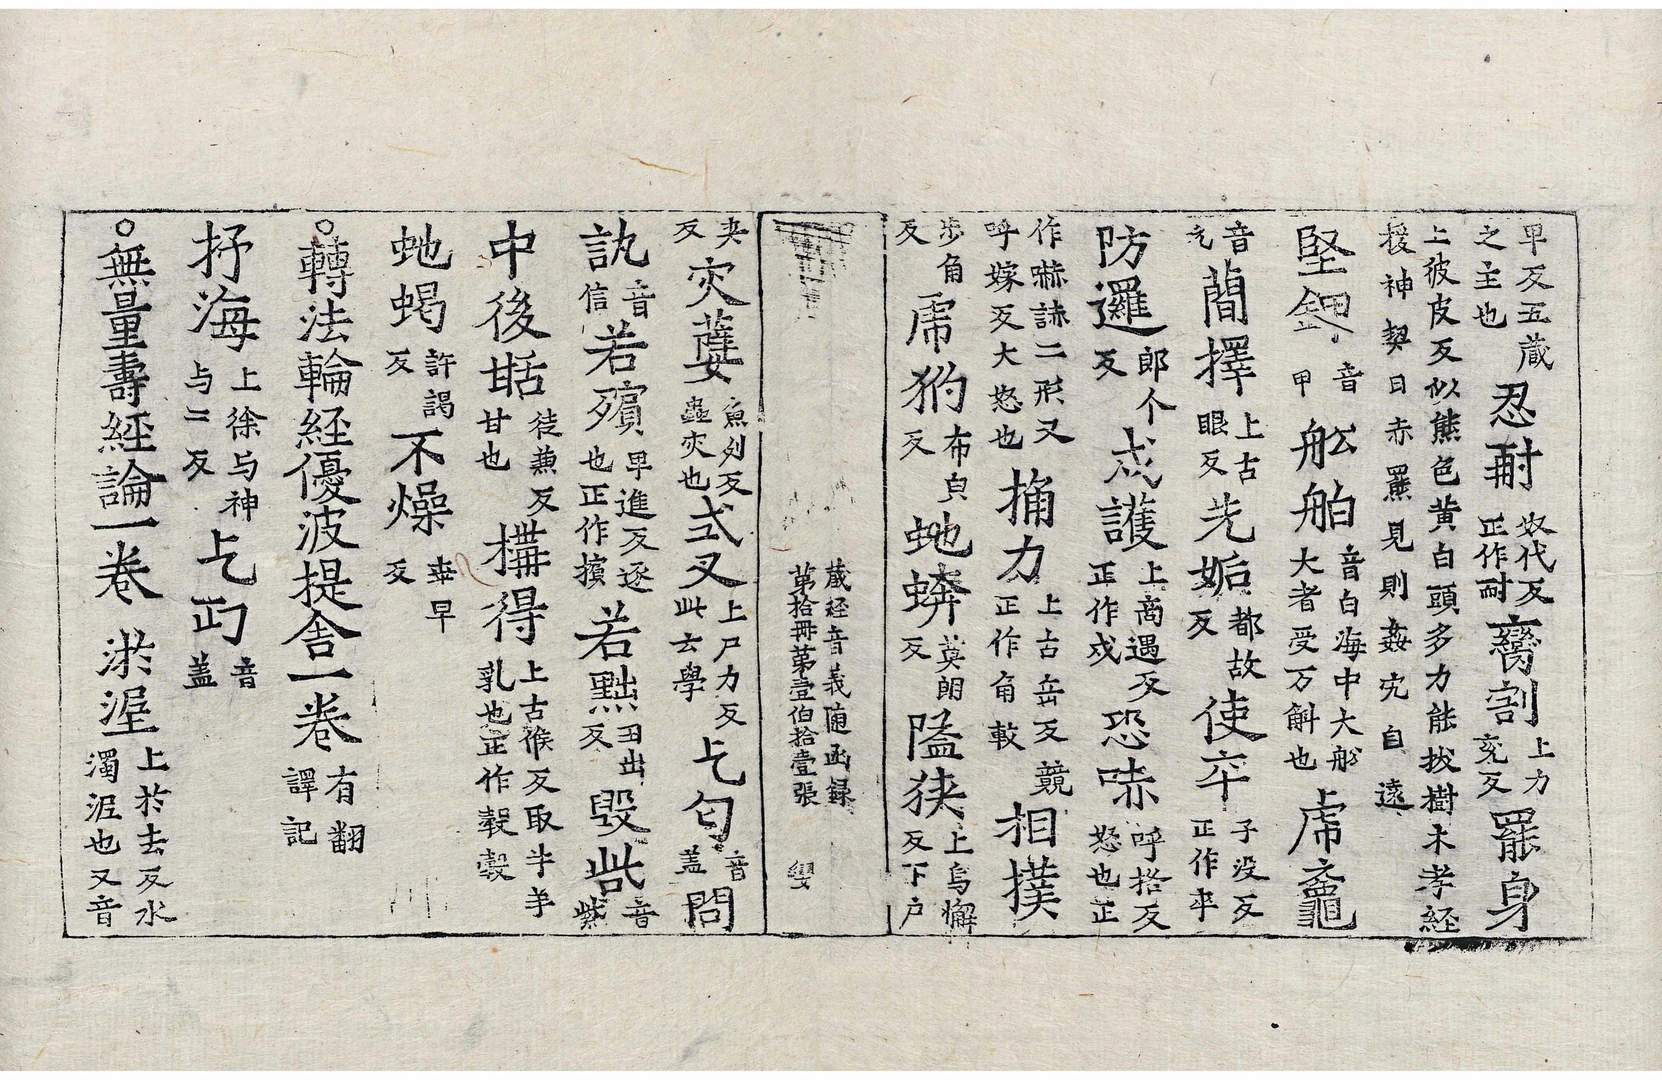 甲反五蔵之主也忍耐奴代反正作耐臠割上力兖反罷身
上彼皮反似熊色黄白頭多力能拔樹木孝経援神契曰赤羆見則姦宄自遠
堅鉀音甲舩舶音白海中大舩大者受万斛也虎䶂
音元蕳擇上古眼反先姤都故反使卒子没反正作卒
防邏郎个反戍護上商遇反正作戍恐㗑呼格反怒也正
作嚇諕二形又呼嫁反大怒也捔力上古岳反競正作角較相撲
歩角反虎犳布皃反虵蟒莫朗反隘狹上烏懈反下户
蔵経音義随函録
第拾冊第壹伯拾壹張
夾反灾㜸魚列反䖝灾也式叉上尸力反此云學乞匃音盖問
訙音信若殯畀進反逐也正作擯若黜丑出反毀呰音紫
中後甛徒蒹反甘也搆得上古候反取牛羊乳也正作㝅㲉
虵蝎許謁反不燥桒早反
。轉法輪経優波提舎一卷有翻譯記
抒海上徐与神与二反乞匃音盖
。無量壽経論一卷淤渥上於去反水濁泥也又音